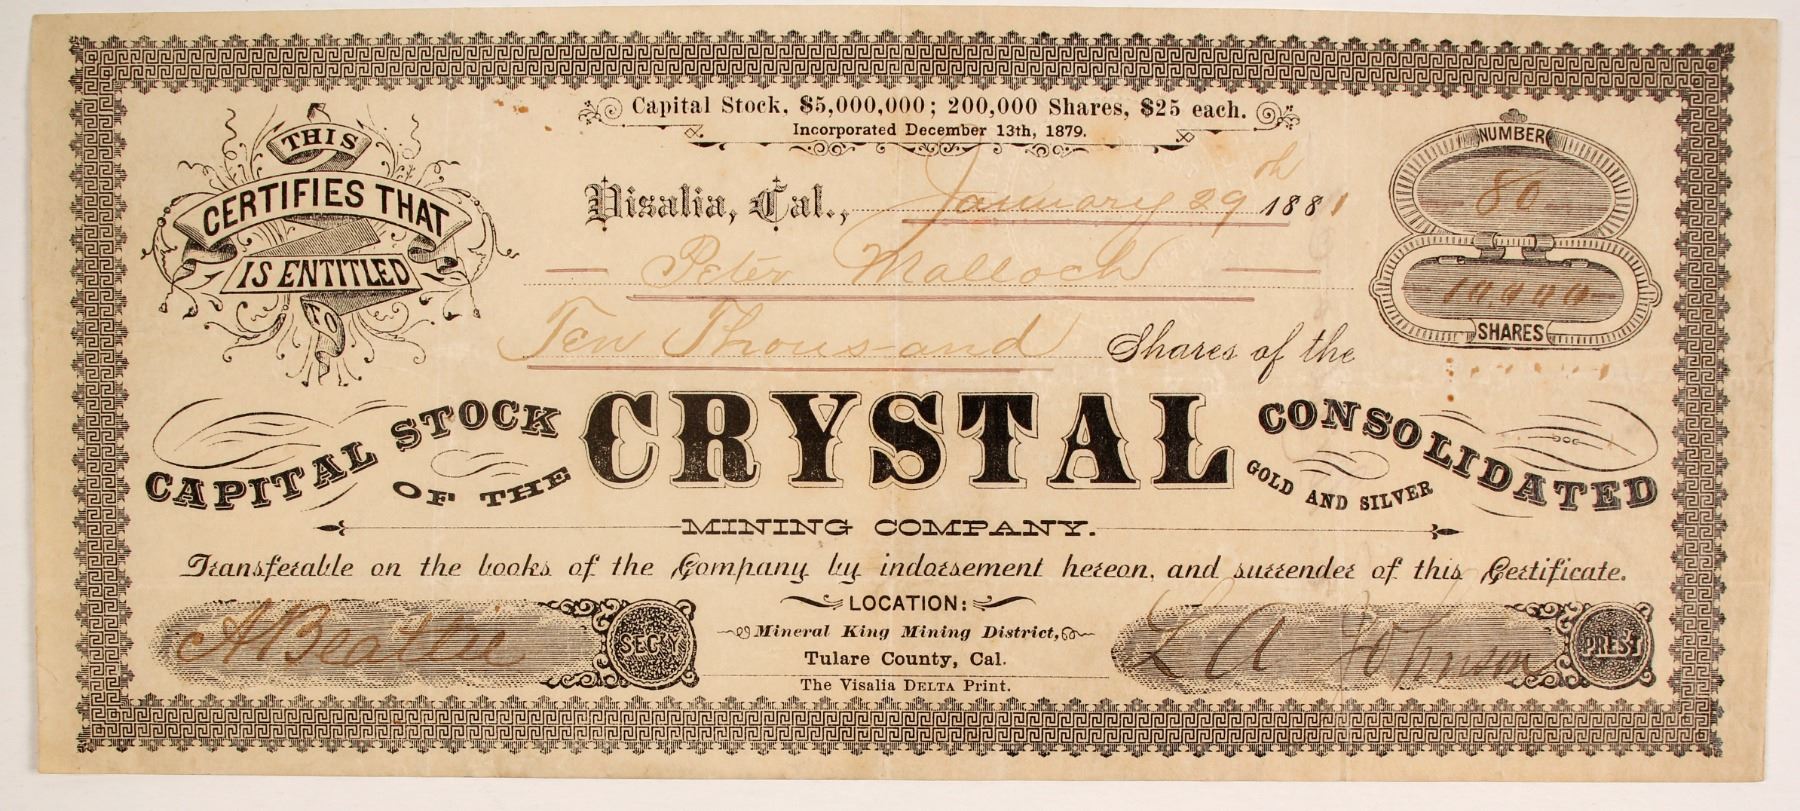 Capital Stock, $5,000,000; 200,000 Shares, $25 each.
Incorporated December 13th, 1879.
THIS
CERTIFIES THAT
IS ENTITLED
TO
Visalia, Cal., January 29th 1881
NUMBER
80
Peter Malloch
10000
SHARES
Ten Thousand Shares of the
CAPITAL STOCK
OF THE
CRYSTAL
CONSOLIDATED
GOLD AND SILVER
MINING COMPANY.
Transferable on the books of the Company by indorsement hereon, and surrender of this Certificate.
A Beattie
SEC'Y
LOCATION:
Mineral King Mining District,
Tulare County, Cal.
The Visalia DELTA Print.
L A Johnson
PREST